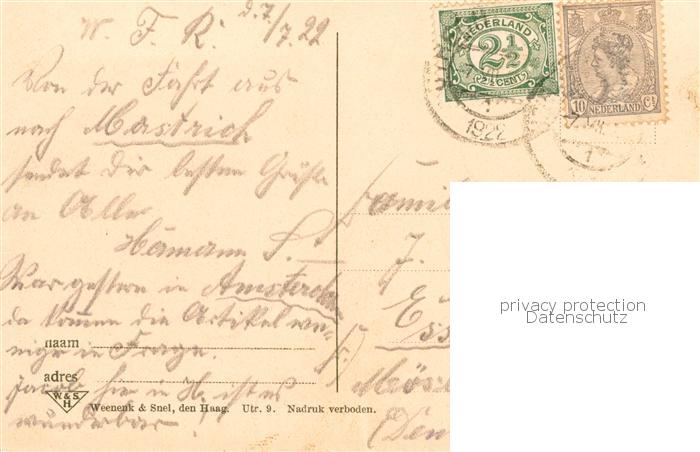 W. F. R. d. 7/7. 22
Von der Fahrt aus
nach Mastrich
sendet Dir besten Grüße
an Alle
Hamann
War gestern in Amsterdam
da kommen die Artikel we-
niger in Frage.
Jacob, hier in H. ist es
wunderbar!
NEDERLAND
2½
(2½ CENT)
10 Ct
NEDERLAND
1922
Famil
J.
Ess
naam
adres
W.&S.
H
Weenenk & Snel, den Haag. Utr. 9. Nadruk verboden.
privacy protection
Datenschutz